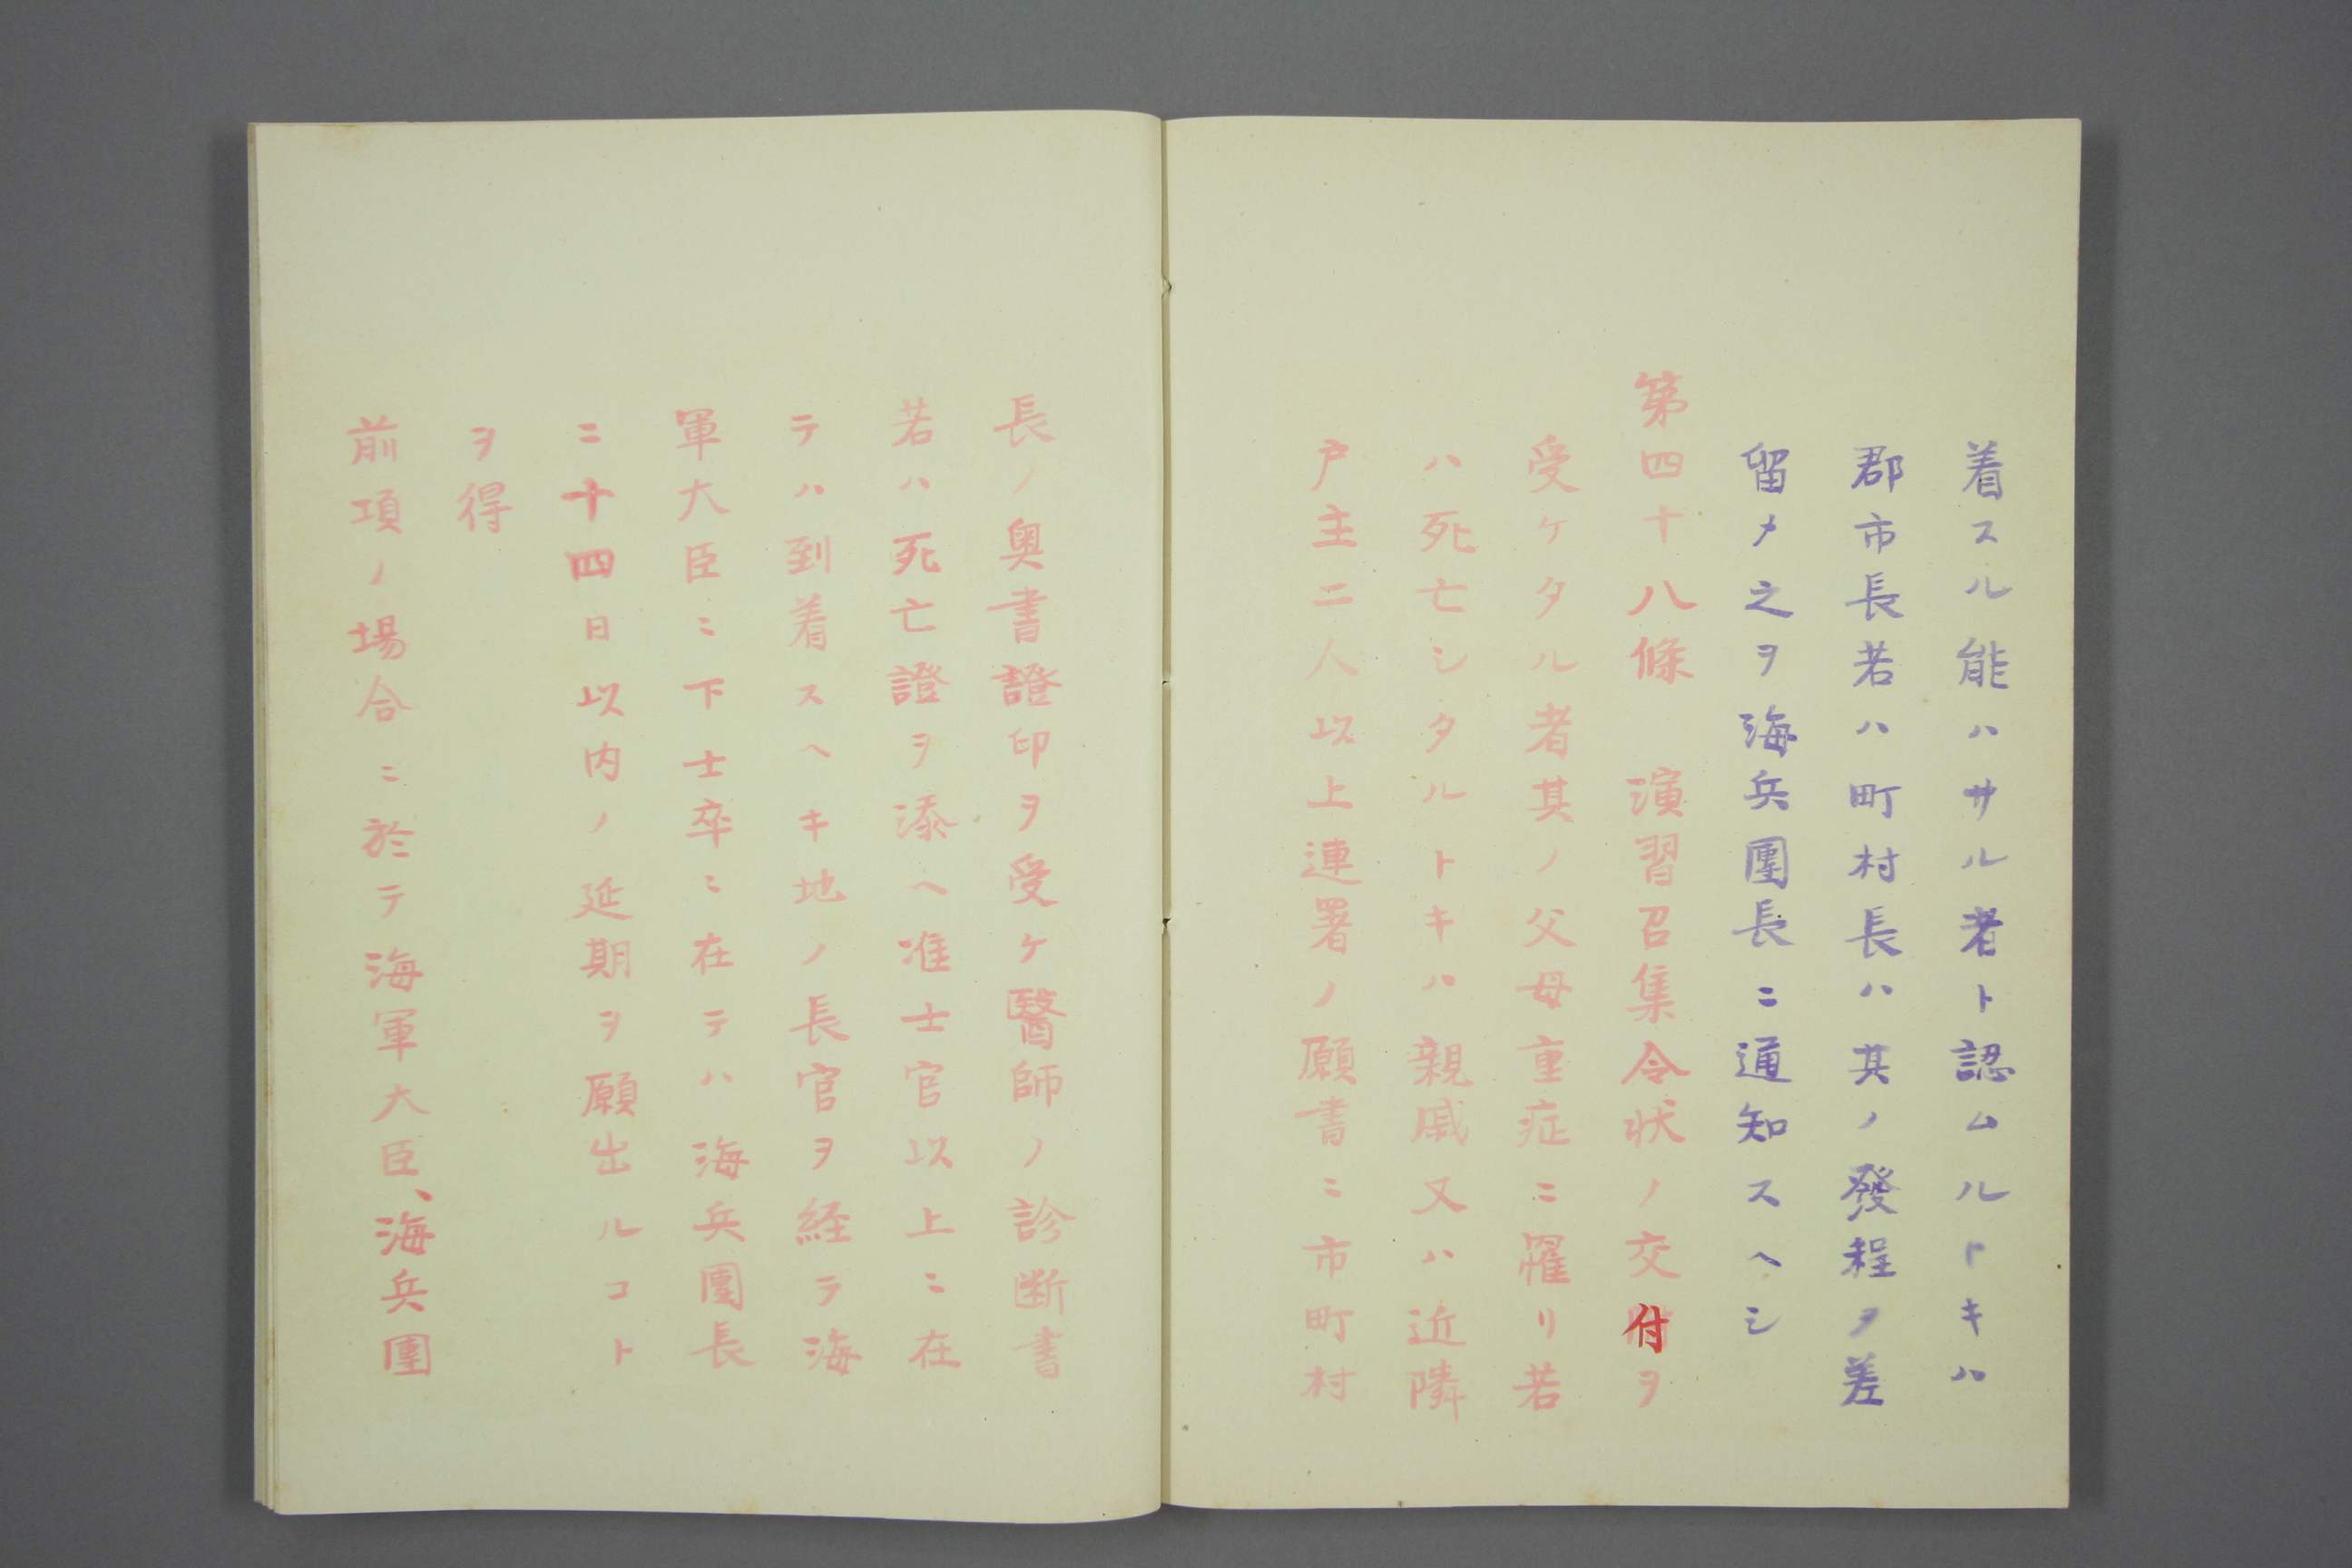 着スル能ハサル者ト認ムルトキハ
郡市長若ハ町村長ハ其ノ發程ヲ差
留メ之ヲ海兵團長ニ通知スヘシ
第四十八條　演習召集令状ノ交付ヲ
受ケタル者其ノ父母重症ニ罹リ若
ハ死亡シタルトキハ親戚又ハ近隣
戸主二人以上連署ノ願書ニ市町村
長ノ奥書證印ヲ受ケ醫師ノ診断書
若ハ死亡證ヲ添ヘ准士官以上ニ在
テハ到着スヘキ地ノ長官ヲ経テ海
軍大臣ニ下士卒ニ在テハ海兵團長
ニ十四日以内ノ延期ヲ願出ルコト
ヲ得
前項ノ場合ニ於テ海軍大臣、海兵團